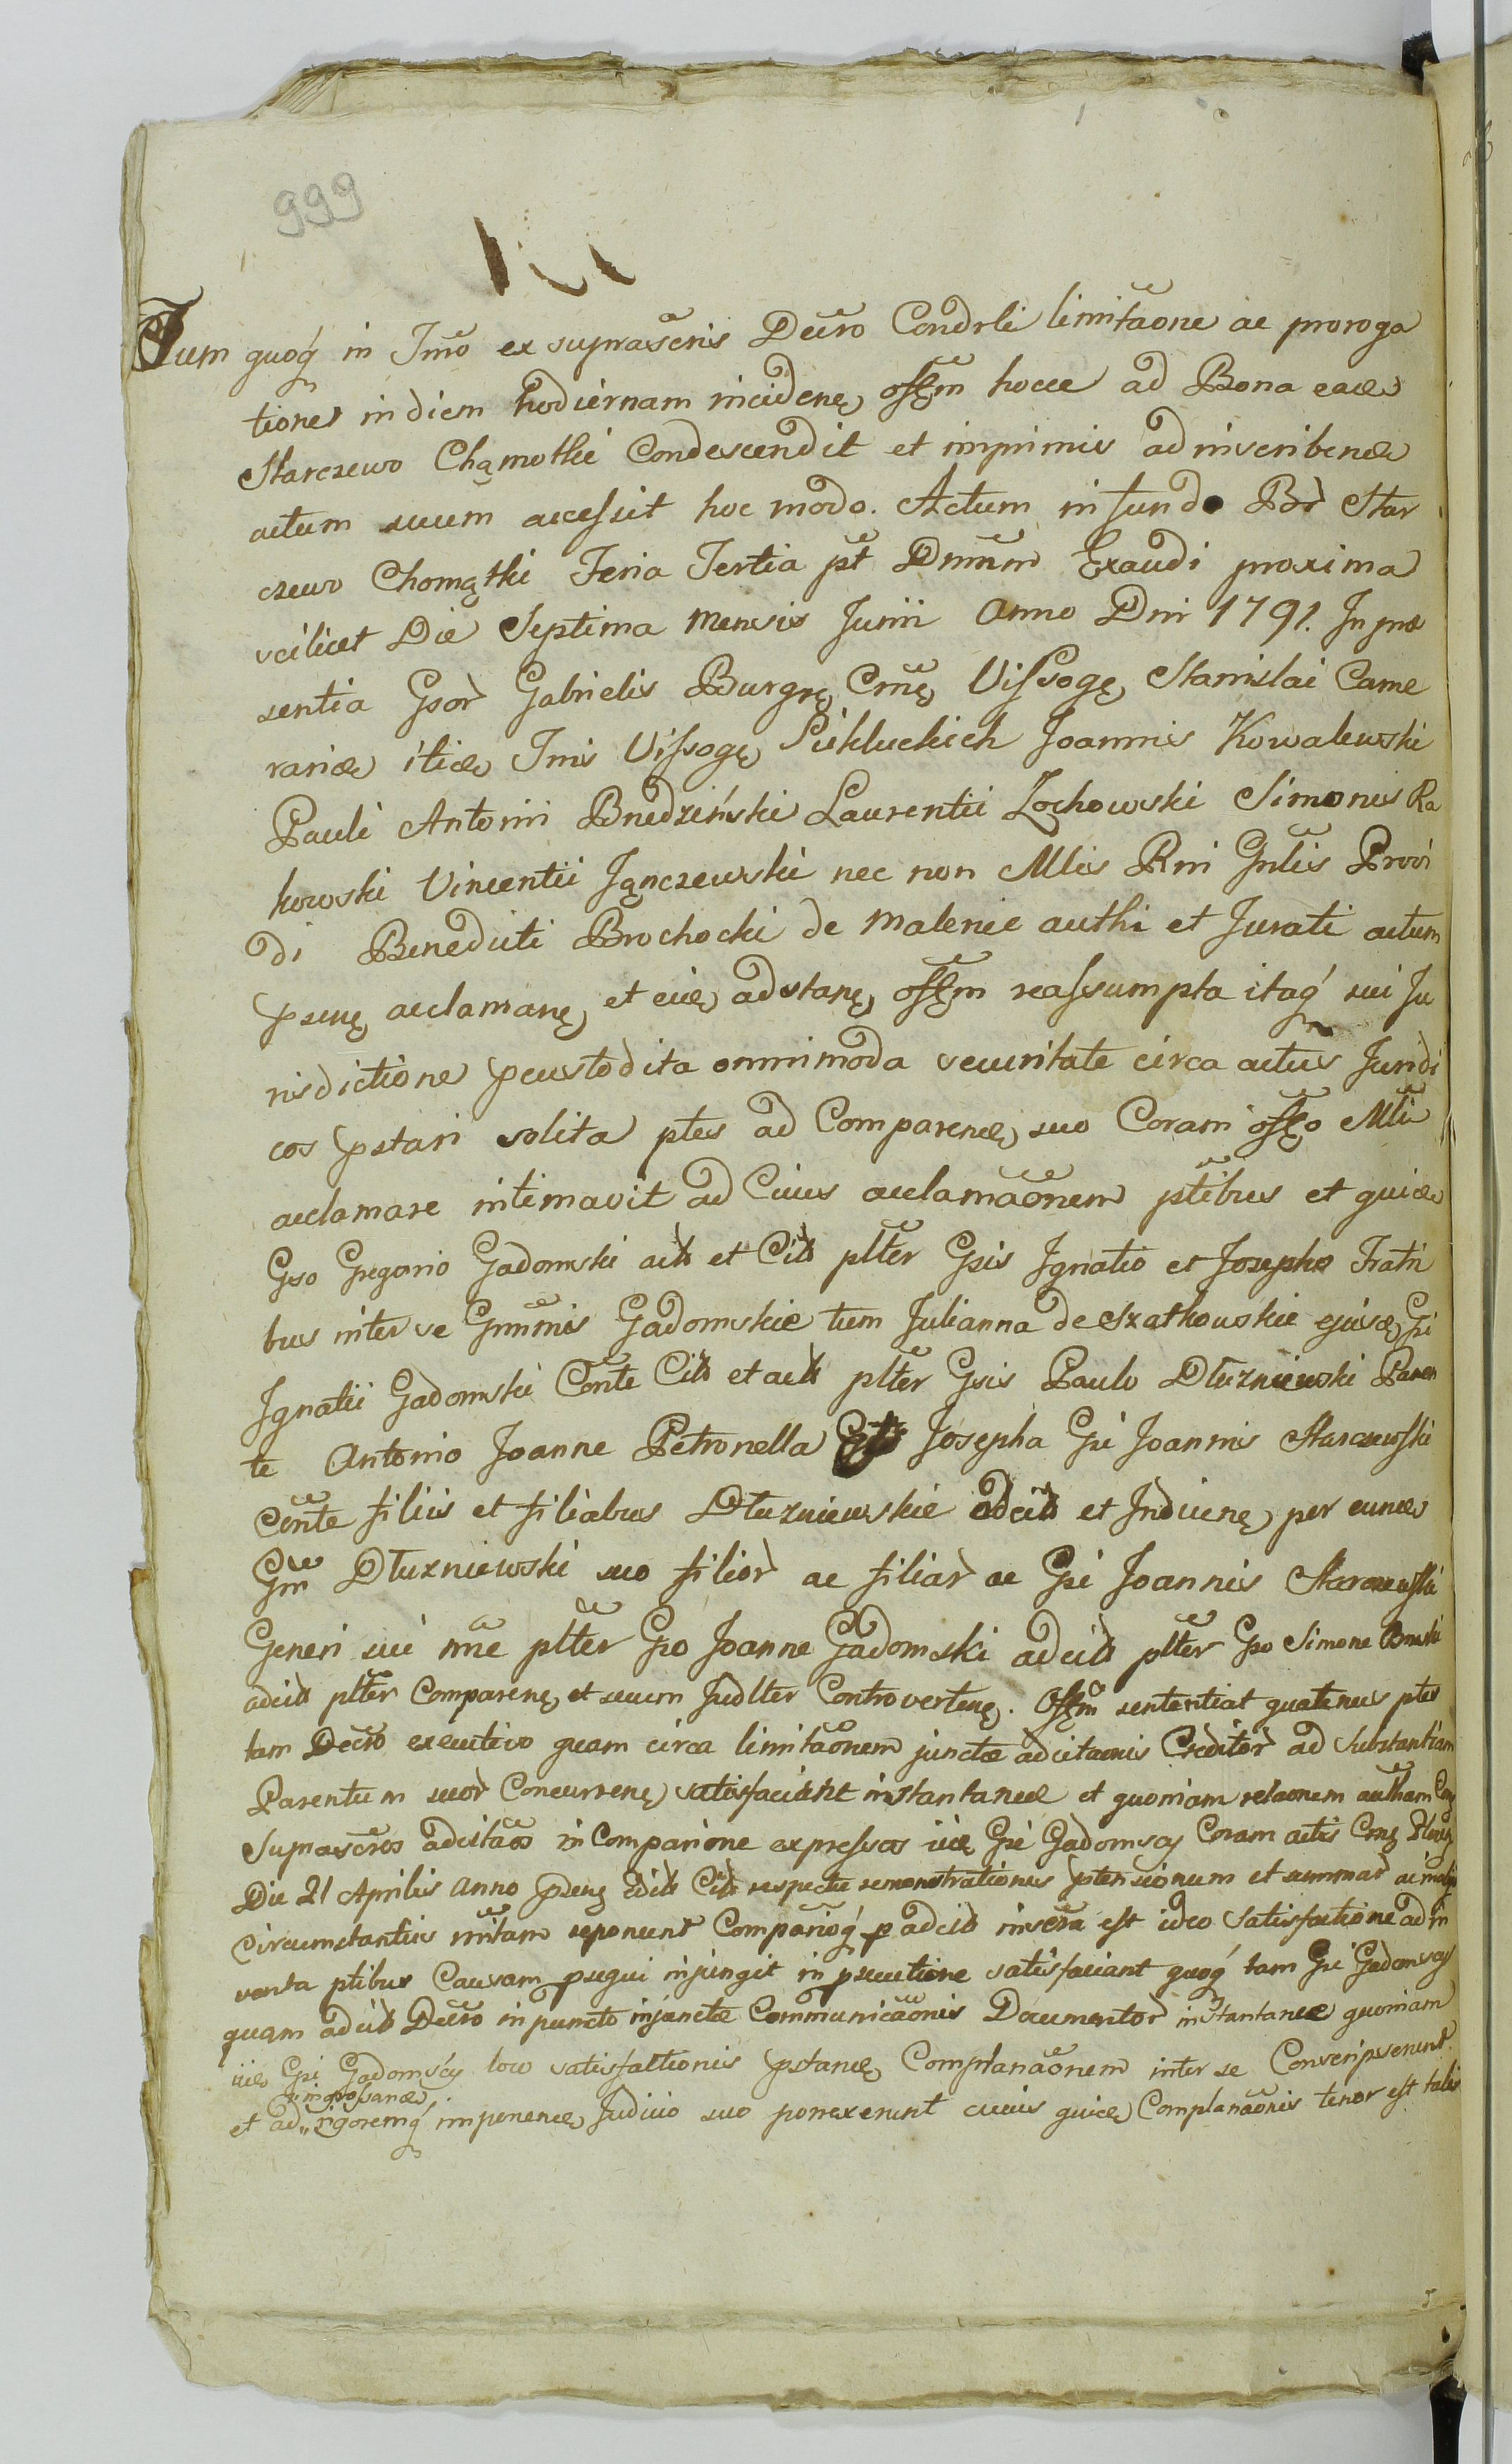 999
Tum quoq́ in Tm̃o ex suprascr̃is Decr̃o Condrli limitãone ac proroga
tione in diem hodiernam incidenę, offm̃ hocce ad Bona eadę
Starczewo Chąmotki Condescendit et imprimis ad inscribendę
actum suum accessit hoc modo. Actum in fundo Br Star
czewo Chomątki Feria Tertia pt̃ Dnm̃m Exaudi proxima
scilicet Die Septima Mensis Junii Anno Dni 1791. In præ
sentia Gsor Gabrielis Burgrę Crñę Vissogę Stanislai Came
rarię itidę Tnis Vissogę Piekluckich Joannis Kowalewski
Pauli Antonii Bnedziński Laurentii Zochowski Simonis Ra
kowski Vincentii Jąnczewski nec non Mlis Rni Gnl̃is Provi
di Benedicti Brochocki de Malenie authi et Jurati actum
psenę acclamanę et eidę adstanę offm̃ reassumpta itaq́ sui Ju
risdictione pcustodita omnimoda securitate circa actus Juridi
cos pstari solita ptes ad Comparendę suo Coram offo Mli
acclamare intimavit ad Cuius acclamãonem ptibus et quidę
Gso Gregorio Gadomski act et Cit plt̃er Gsis Ignatio et Josepho Fratri
bus inter se Grm̃nis Gadomskie tum Julianna de Szatkowskie ejusdę Gsi
Ignatii Gadomski Cõnte Cit et act plt̃er Gsis Paulo Dłuzniewski Paren
te Antonio Joanne Petronella Josepha Gsi Joannis Starczewski
Cõnte filiis et filiabus Dłuzniewskie adcit et Inducenę per eundę
Gm̃ Dłuzniewski suo filior ac filiar ac Gsi Joannis Starczewski
Generi sui nm̃e plt̃er Gso Joanne Gadomski adcit plt̃er Gso Simone
adcit plt̃er Comparenę et suum Judlter Controvertenę. Offm̃ sententiat quatenus ptes
tam Decr̃o executivo quam circa limitãonem junctæ adcitaonis Creditor ad Substantiam
Parentum suor Concurrenę satisfaciant instantanee et quoniam relaonem autham
Suprascr̃os adcitãos in Comparione expressos iidę Gsi Gadomscy Coram actis Crnę
Die 21 Aprilis Anno psenę adcit Cit respectu remonstrationis ptensionum et summar
Circumstantiis nñtam reponunt Comparioq́ p adcit inserta est ideo Satisfactione ad in
venta ptibus Causam psequi injungit in psecutione satisfaciant quoq́ tam Gsi Gadomscy
quam adcit Decr̃o in puncto injunctæ Communicãonis Documentor instantanee quoniam
iidę Gsi Gadomscy loco satisfactionis pstandę Complanãonem inter se Conscripserunt
approbandę
et ad rigoremq́ imponendę Judicio suo porrexerunt cuius quidę Complanãonis tenor est talis